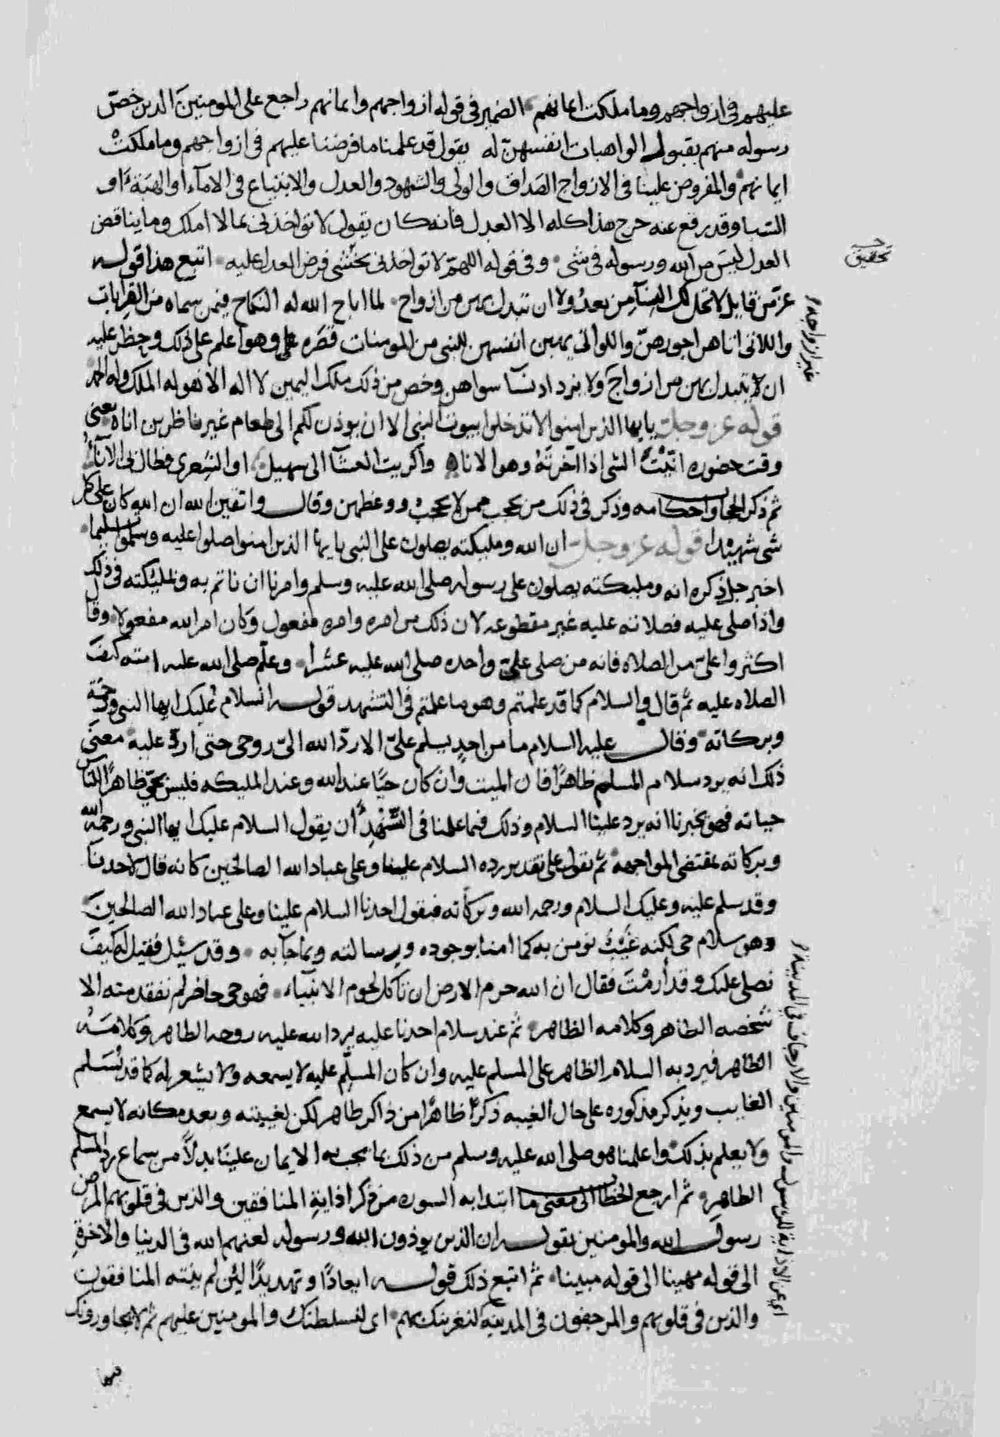 عليهم في ازواجهم وما ملكت ايمانهم الضمير في قوله ازواجهم وايمانهم راجع على المومنين الذين خص
رسوله منهم بقبول الواهبات انفسهن له يقول قد علمنا ما فرضنا عليهم في ازواجهم وما ملكت
ايمانهم والمفروض علينا في الازواج الصداق والولي والشهود والعدل والابتياع في الاماء او الهبة او
السبا وقد رفع عنه حرج هذا كله الا العدل فانه كان يقول لا تواخذني بما لا املك وما يناقض
العدل ليس من الله ورسوله في شي وفي قوله اللهم لا تواخذني بخشى فرض العدل عليه اتبع هذا قوله
عز من قايل لا تحل لك النسآ من بعد ولا ان تبدل بهن من ازواج لما اباح الله له النكاح فيمن سماه من القرابات
واللاتي اتاهن اجورهن واللواتي يهبن انفسهن للنبي من المومنات قصره على وهو اعلم على ذلك وحظر عليه
ان لا يتبدل بهن من ازواج ولا يزداد نسآ سواهن وخص من ذلك ملك اليمين لا اله الا هو له الملك وله الحمد
قوله عز وجل يايها الذين امنوا لا تدخلوا بيوت النبي الا ان يوذن لكم الى طعام غير ناظرين اناه يعني
وقت حضوره انيت الشي اذا اخرته وهو الاناه وآكريت العشآ الى سهيل او الشعرى فطال بي الانآء
ثم ذكر الحجاب واحكامه وذكر في ذلك من يحجب ممن لا يحجب ووعظهن وقال واتقين الله ان الله كان على كل
شي شهيدا قوله عز وجل ان الله ومليكته يصلون على النبي يايها الذين امنوا صلوا عليه وسلموا تسليما
اخبر جل ذكره انه ومليكته يصلون على رسوله صلى الله عليه وسلم وامرنا ان ناتم به وبمليكته في ذلك
واذا صلى عليه فصلاته عليه غير مقطوعه لان ذلك من امره وامره مفعول وكان امر الله مفعولا وقا
اكثروا علي من الصلاه فانه من صلى علي واحده صلى الله عليه عشرا وعلم صلى الله عليه امته كيف
الصلاه عليه ثم قال والسلام كما قد علمتم وهو ما علمتم في التشهد قوله السلام عليك ايها النبي ورحمة
وبركاته وقال عليه السلام ما من احد يسلم علي الا رد الله الي روحي حتى ارد عليه معنى
ذلك انه يرد سلام المسلم ظاهرا فان الميت وان كان حيا عند الله وعند المليكه فليس بحي ظاهرا للناس
حياته فهو يخبرنا انه يرد علينا السلام وذلك فيما علمنا في التشهد ان يقول السلام عليك ايها النبي ورحمة الله
وبركاته بمقتضى المواجهة ثم نقول على تقدير رده السلام علينا وعلى عباد الله الصالحين كانه قال لاحدنا
وقد سلم عليه وعليك السلام ورحمه الله وبركاته فيقول احدنا السلام علينا وعلى عباد الله الصالحين
وهو سلام حي لكنه غيب نومن به كما امنا بوجوده وبرسالته وبما جآ به وقد سئل فقيل له كيف
نصلي عليك وقد أرمت فقال ان الله حرم الارض ان تاكل لحوم الانبياء فهو حي حاضر لم نفقد منه الا
شخصه الطاهر وكلامه الظاهر ثم عند سلام احدنا عليه يرد الله عليه روحه الطاهر وكلامه
الظاهر فيرد به السلام الظاهر على المسلم عليه وان كان المسلم عليه لا يسمعه ولا يشعر له كما قد يسلم
الغايب ويذكر مذكوره على حال الغيبه ذكرا ظاهرا من ذاكر ظاهر لكن لغيبته وبعد مكانه لا يسمع
ولا يعلم بذلك واعلمنا هو صلى الله عليه وسلم من ذلك بما يجب به الايمان علينا بدلا من سماع رد المسلم
الظاهر ثم ارجع الخطاب الى معنى ما ابتدا به السوره من ذكر اذاية المنافقين والذين في قلوبهم المرض
رسول الله والمومنين بقوله ان الذين يوذون الله ورسوله لعنهم الله في الدنيا والاخرة
الى قوله مهينا الى قوله مبينا ثم اتبع ذلك قوله ايعادا وتهديدا لئن لم ينته المنافقون
والذين في قلوبهم والمرجفون في المدينة لنغرينك بهم اي لنسلطنك والمومنين عليهم ثم لا يجاورونك
فيها
تحقيق
غير ازواجه
اي عن الاذاية للرسول والمومنين والارجاف في المدينة